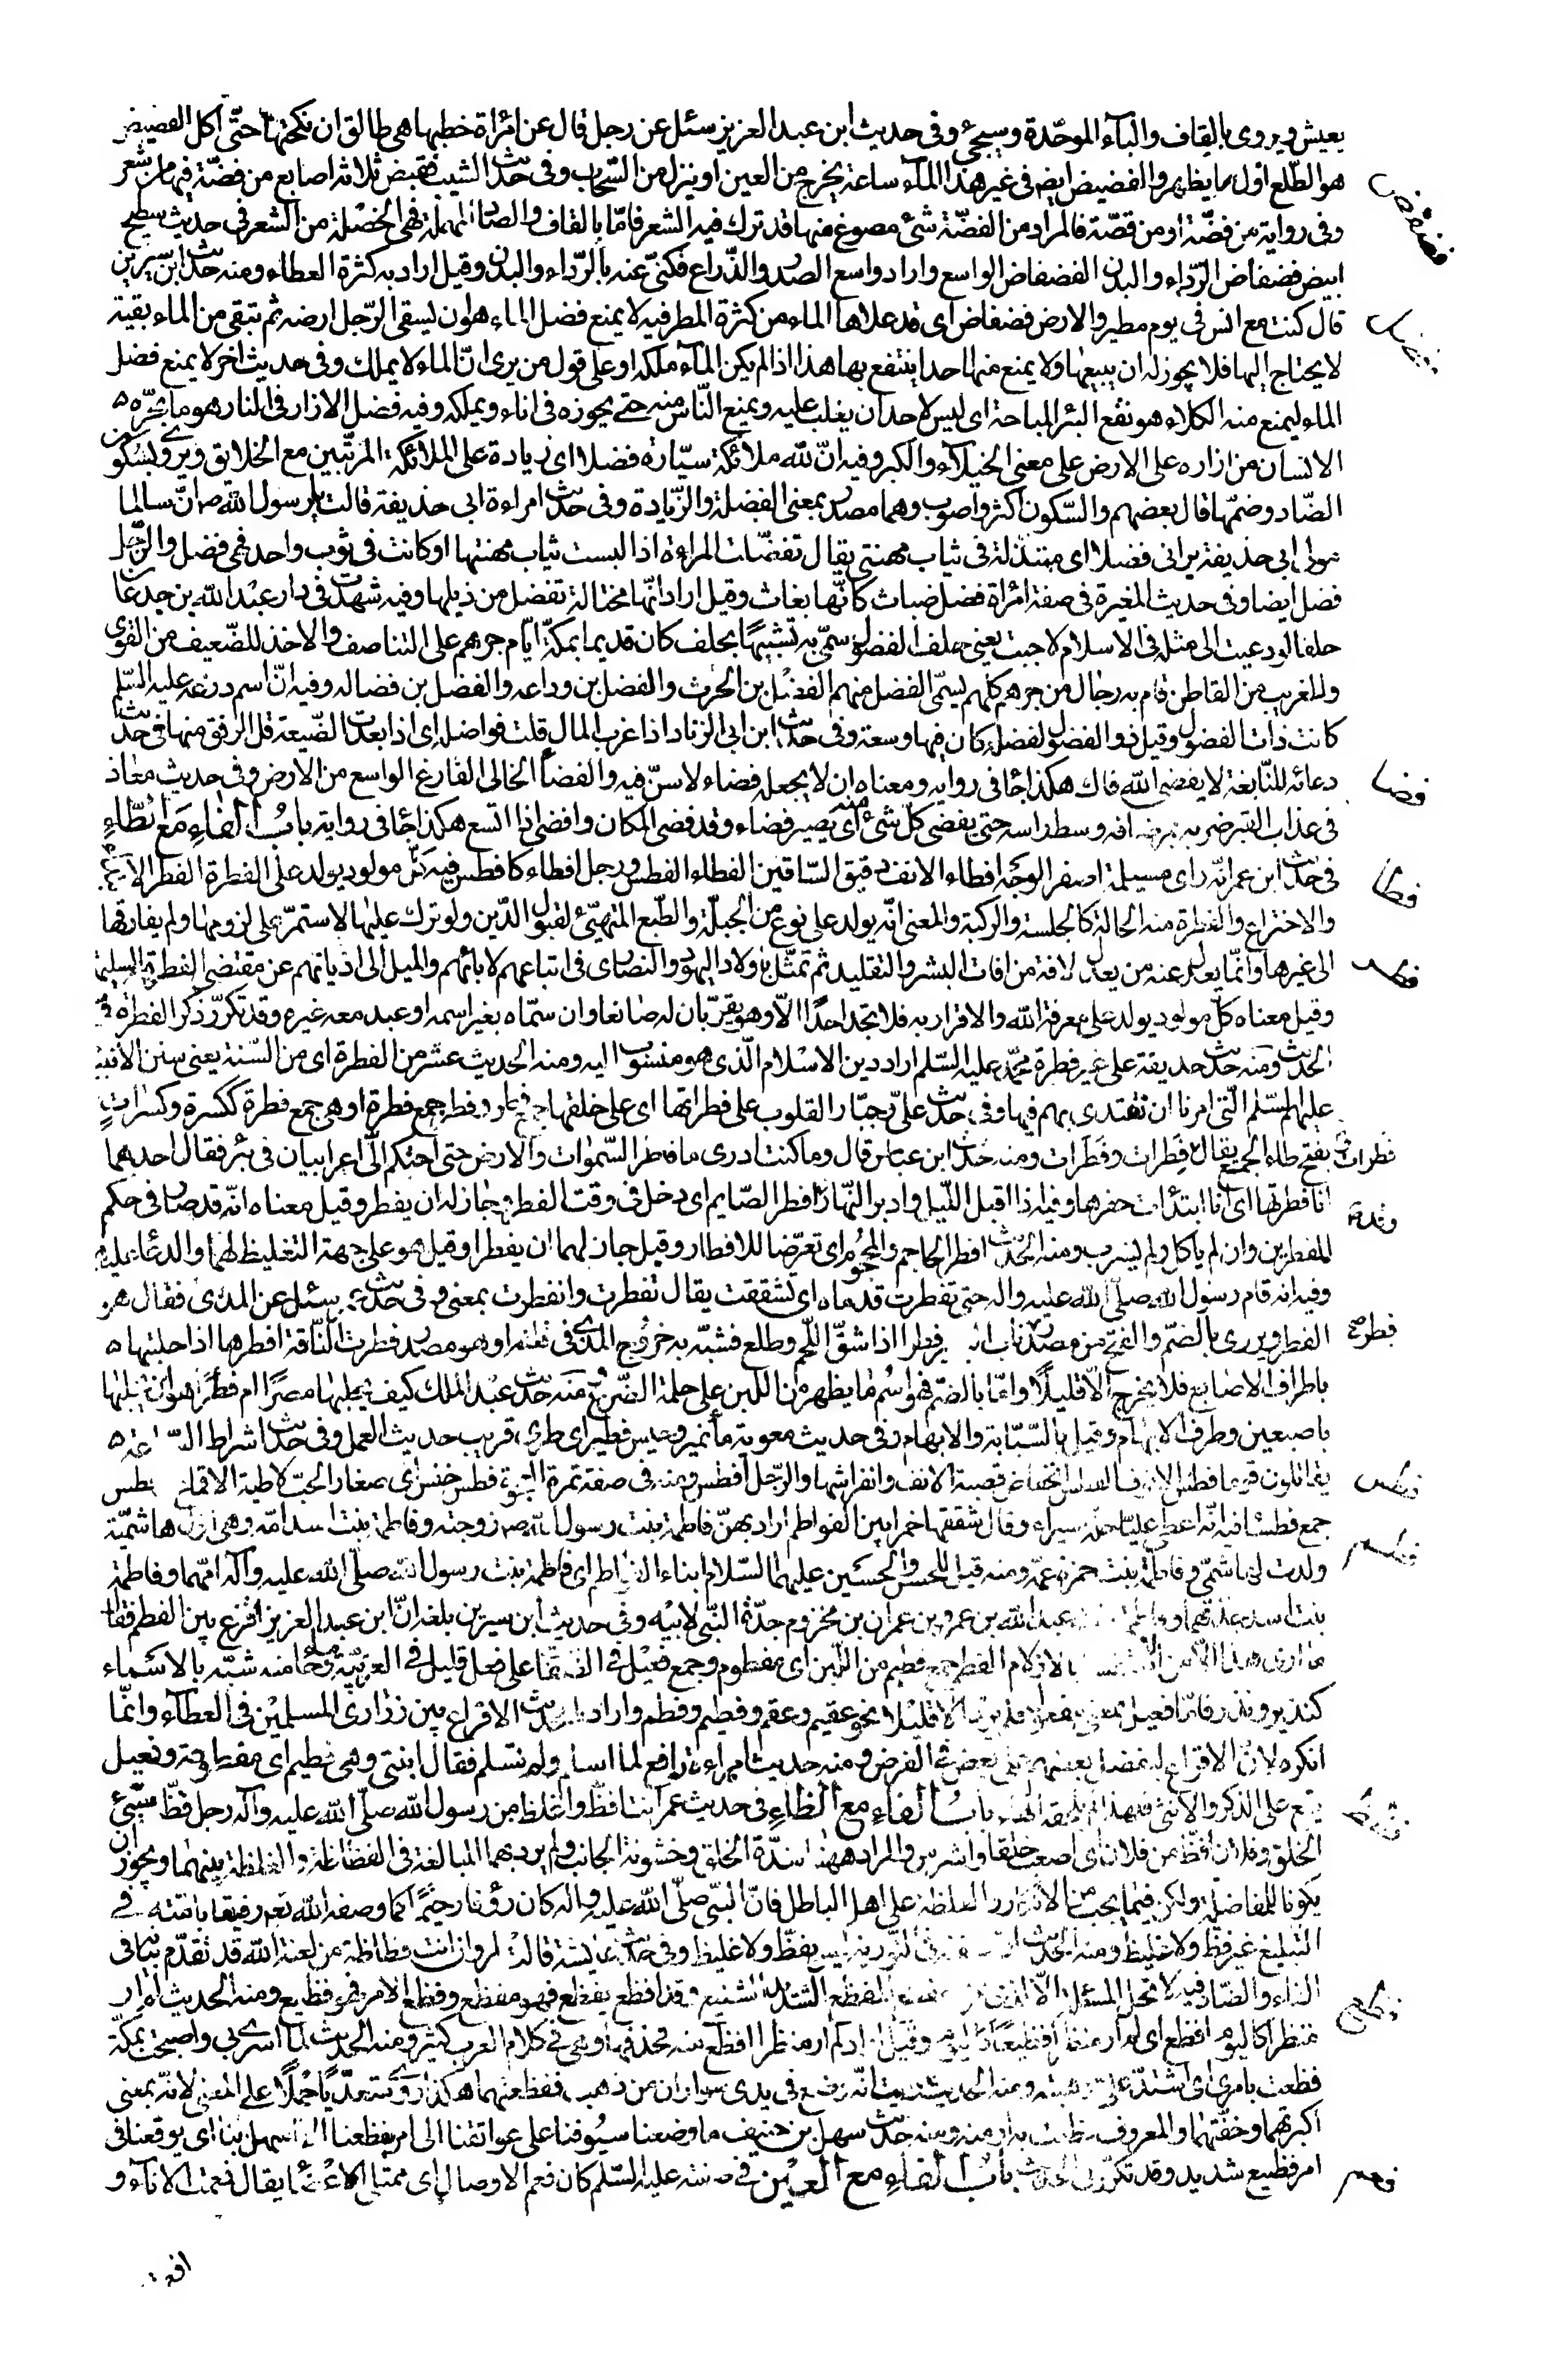 يعيش ويروى بالقاف والبآء الموحّدة وسيجئ وفى حديث ابن عبد العزيز سئل عن رجل قال عن امرأة خطبها هى طالق ان نكحتها حتّى آكل الفضيض
هو الطّلع اوّل ما يظهر والفضيض ايضا فى غير هذا المآء ساعة يخرج من العين او ينزل من السّحاب وفى حديث الشيب فقبض ثلاثة اصابع من فضّة فيها من شعر
فضفض
وفى رواية من فضّة او من قصّة فالمراد من الفضّة شئ مصوغ منها قد ترك فيه الشعر فامّا بالقاف والصّاد المهملة فهى الخصلة من الشعر فى حديث سطيح
ابيض فضفاض الرّداء والبدن الفضفاض الواسع واراد واسع الصدر والذّراع فكنّى عنه بالرّداء والبدن وقيل اراد به كثرة العطاء ومنه حديث ابن سيرين
قال كنت مع انس فى يوم مطير والارض فضفاض اى قد علاها الماء من كثرة المطر فيه لا يمنع فضل الماء هو ان يسقى الرّجل ارضه ثم تبقى من الماء بقيّة
فضل
لا يحتاج اليها فلا يجوز له ان يبيعها ولا يمنع منها احدا ينتفع بها هذا اذا لم يكن المآء ملكه او على قول من يرى انّ الماء لا يملك وفى حديث اخر لا يمنع فضل
الماء ليمنع منه الكلاء هو نقع البئر المباحة اى ليس لاحد ان يغلب عليه ويمنع النّاس منه حتى يحوزه فى اناء ويملكه وفيه فضل الازار فى النار هو ما يجرّه
الانسان من ازاره على الارض على معنى الخيلآء والكبر وفيه انّ لله ملائكة سيّارة فضلا اى زيادة على الملائكة المرتّبين مع الخلايق ويروى بسكون
الضّاد وضمّها قال بعضهم والسّكون اكثر واصوب وهما مصدر بمعنى الفضلة والزّيادة وفى حديث امراءة ابى حذيفة قالت يا رسول الله ص انّ سالما
مولى ابى حذيفة يرانى فضلا اى متبذّلة فى ثياب مهنتى يقال تفضّلت المراءة اذا لبست ثياب مهنتها او كانت فى ثوب واحد فهى فضل والرّجل
فضل ايضا وفى حديث المغيرة فى صفة امرأة فضل ضباث كانّها بغاث وقيل اراد انّها مختالة تفضل من ذيلها وفيه شهدت فى دار عبد الله بن جدعان
حلفا لو دعيت الى مثله فى الاسلام لاجبت يعنى حلف الفضول سمّى به تشبيهًا بحلف كان قديما بمكّة ايّام جرهم على التناصف والاخذ للضّعيف من القوى
وللغريب من القاطن قام به رجال من جرهم كلّهم يسمّى الفضل منهم الفضل بن الحرث والفضل بن وداعه والفضل بن فضاله وفيه انّ اسم درعه عليه السّلم
كانت ذات الفضول وقيل ذو الفضول لفضل كان فيها وسعة وفى حديث ابن ابى الزناد اذا عزب المال قلت فواضله اى اذا بعدت الضّيعة قلّ الرفق منها فى حديث
فضا
دعائه للنّابغة لا يفضى الله فاك هكذا جآ فى روايه ومعناه ان لا يجعله فضاء لا سنّ فيه والفضآ الخالى الفارغ الواسع من الارض وفى حديث معاذ
فى عذاب القبر ضربه بمرضافه وسط راسه حتى يفضى كلّ شئ منه اى يصير فضاء وقد فضى المكان وافضى اذا اتسع هكذا جآ فى رواية بابُ الفاءِ مَع الطّاءِ
فطا
فى حديث ابن عمر انّه راى مسيلمة اصفر الوجه افطاء الانف دقيق السّاقين الفطاء الفطس ورجل افطاء كافطس فيه كلّ مولود يولد على الفطرة الفطر الابتداء
والاختراع والفطرة منه الحالة كالجلسة والركبة والمعنى انّه يولد على نوع من الجبلّة والطّبع المتهيّئ لقبول الدّين ولو ترك عليها لاستمرّ على لزومها ولم يفارقها
فطر
الى غيرها وانّما يعدل عنه من يعدل لافة من افات البشر والتقليد ثم تمثّل باولاد اليهود والنصارى فى اتباعهم لابائهم والميل الى اديانهم عن مقتضى الفطرة السليمة
وقيل معناه كلّ مولود يولد على معرفة الله والاقرار به فلا تجد احدًا الاّ وهو يقرّ بان له صانعا وان سمّاه بغير اسمه او عبد معه غيره وقد تكرّر ذكر الفطرة فى
الحديث ومنه حديث حذيفة على غير فطرة محمّد عليه السّلم اراد دين الاسلام الّذى هو منسوب اليه ومنه الحديث عشر من الفطرة اى من السّنة يعنى سنن الانبيا
عليهم السّلم الّتى امرنا ان نقتدى بهم فيها وفى حديث علىّ وجبّار القلوب على فطراتها اى على خلقها جمع فطر وفطر جمع فطرة او هى جمع فطرة ككسرة وكسرات
بفتح طاء الجميع يقال فِطِرات وفِطَرات ومنه حديث ابن عباس قال وما كنت ادرى ما فاطر السّموات والارض حتى احتكم الىّ اعرابيان فى بئر فقال احدهما
انا فطرتها اى انا ابتدأت حفرها وفيه اذا اقبل اللّيل وادبر النّهار افطر الصّايم اى دخل فى وقت الفطر وجاز له ان يفطر وقيل معناه انّه قد صار فى حكم
المفطرين وان لم ياكل ولم يشرب ومنه الحديث افطر الحاجم والمحجوم اى تعرّضا للافطار وقيل حان لهما ان يفطرا وقيل هو على جهة التغليظ لهما والدعا عليهما
وفيه انّه قام رسول الله صلّى الله عليه واله حتى تفطرت قدماه اى تشققت يقال تفطرت وانفطرت بمعنى وفى حديث عمر سئل عن المذى فقال هو
الفطر ويروى بالضمّ والفتح من مصدر ناب البعير فطرا اذا شقّ اللّحم وطلع فشبّه به خروج المذى فى قلّته او هو مصدر فطرت النّاقة افطرها اذا حلبتها
باطراف الاصابع فلا يخرج الاّ قليلًا وامّا بالضمّ فهو اسم ما يظهر من اللبن على حلمة الضّرع ومنه حديث عبد الملك كيف تحلبها مصرًا ام فطرًا هو ان تحلبها
باصبعين وطرف الابهام وقيل بالسّبّابة والابهام وفى حديث معوية مأ نمير وحيس فطير اى طرى قريب حديث العمل وفى حديث اشراط السّاعة
فطس
يقاتلون قوما فطس الانوف الفطس انخفاض قصبة الانف وانفراشها والرّجل افطس ومنه فى صفة تمرة العجوة فطس خنس اى صغار الحبّ لاطية الاقماع فطس
جمع فطساء فيه انّه اعطى عليّا حلّة سيراء وقال شققها خمرا بين الفواطم اراد بهنّ فاطمة بنت رسول الله ص زوجته وفاطمة بنت اسد امّه وهى اوّل هاشميّة
فطم
ولدت لهاشمىّ وفاطمة بنت حمزة عمّه ومنه قيل للحسن والحسين عليهما السّلام ابناء الفواطم اى فاطمة بنت رسول الله صلّى الله عليه وآله امّهما وفاطمة
بنت اسد جدّتهما وفاطمة بنت عبد الله بن عمرو بن عمران بن مخزوم جدّة النّبى لابيه وفى حديث ابن سيرين بلغه انّ ابن عبد العزيز اقرع بين الفطم فقال
ما ارى هذا الاّ من الاستقسام بالازلام الفطم جمع فطيم من اللّبن اى مفطوم وجمع فعيل فى الصّفات على فعل قليل فى العربيّة وما جآ منه شبّه بالاسماء
كنذير ونذر فامّا فعيل بمعنى مفعول فلم يرد الاّ قليلًا نحو عقيم وعقم وفطيم وفطم واراد بالحديث الاقراع بين ذرارى المسلمين فى العطآء وانّما
انكره لانّ الاقراع لتفضيل بعضهم على بعض فى الفرض ومنه حديث امراءة رافع لما اسلم ولم تسلم فقال ابنتى وهى فطيم اى مفطومة وفعيل
فظظ
يقع على الذكر والانثى فلهذا لم يلحقه الهاء بابُ الفاءِ مع الظّاءِ فى حديث عمر انت افظّ واغلظ من رسول الله صلّى الله عليه وآله رجل فظّ سيّئ
الخلق وفلان افظّ من فلان اى اصعب خلقا واشرس والمراد ههنا شدّة الخلق وخشونة الجانب ولم يرد بهما المبالغة فى الفظاظة والغلظة بينهما ويجوز ان
يكونا للمفاضلة ولكن فيما يجب من الانكار والغلظة على اهل الباطل فانّ النبى صلّى الله عليه واله كان رؤفا رحيمًا كما وصفه الله تعم رفيقا بامّته فى
التبليغ غير فظّ ولا غليظ ومنه الحديث انّ صفته فى التّورية ليس بفظّ ولا غليظ وفى حديث عايشة قالت لمروان انت فظاظة من لعنة الله قد تقدّم بيانه فى
الفاء والضّاد فيه لا تحلّ المسئلة الاّ لذى غرم مفظع المفظع الشّديد الشّنيع وقد افظع يفظع فهو مفظع وفظع الامر فهو فظيع ومنه الحديث لم ار
منظرا كاليوم افظع اى لم ار منظرا فظيعًا كاليوم وقيل اراد لم ار منظرا افظع منه فحذفها وهى فى كلام العرب كثير ومنه الحديث لمّا اسرى بى واصبحت بمكّة
فظعت بامرى اى اشتدّ علىّ وهبته ومنه الحديث اريت انّه وضع فى يدى سواران من ذهب ففظعتهما هكذا روى متعدّيًا حملًا على المعنى لانّه بمعنى
اكبرتهما وخفتهما والمعروف فظعت به او منه ومنه حديث سهل بن حنيف ما وضعنا سيوفنا على عواتقنا الى امر يفظعنا الاّ اسهل بنا اى يوقعنا فى
فعم
امر فظيع شديد وقد تكرّر فى الحديث بابُ الفاءِ مع العين فى صفته عليه السّلم كان فعم الاوصال اى ممتلئ الاعضآء يقال فعمت الانآء و